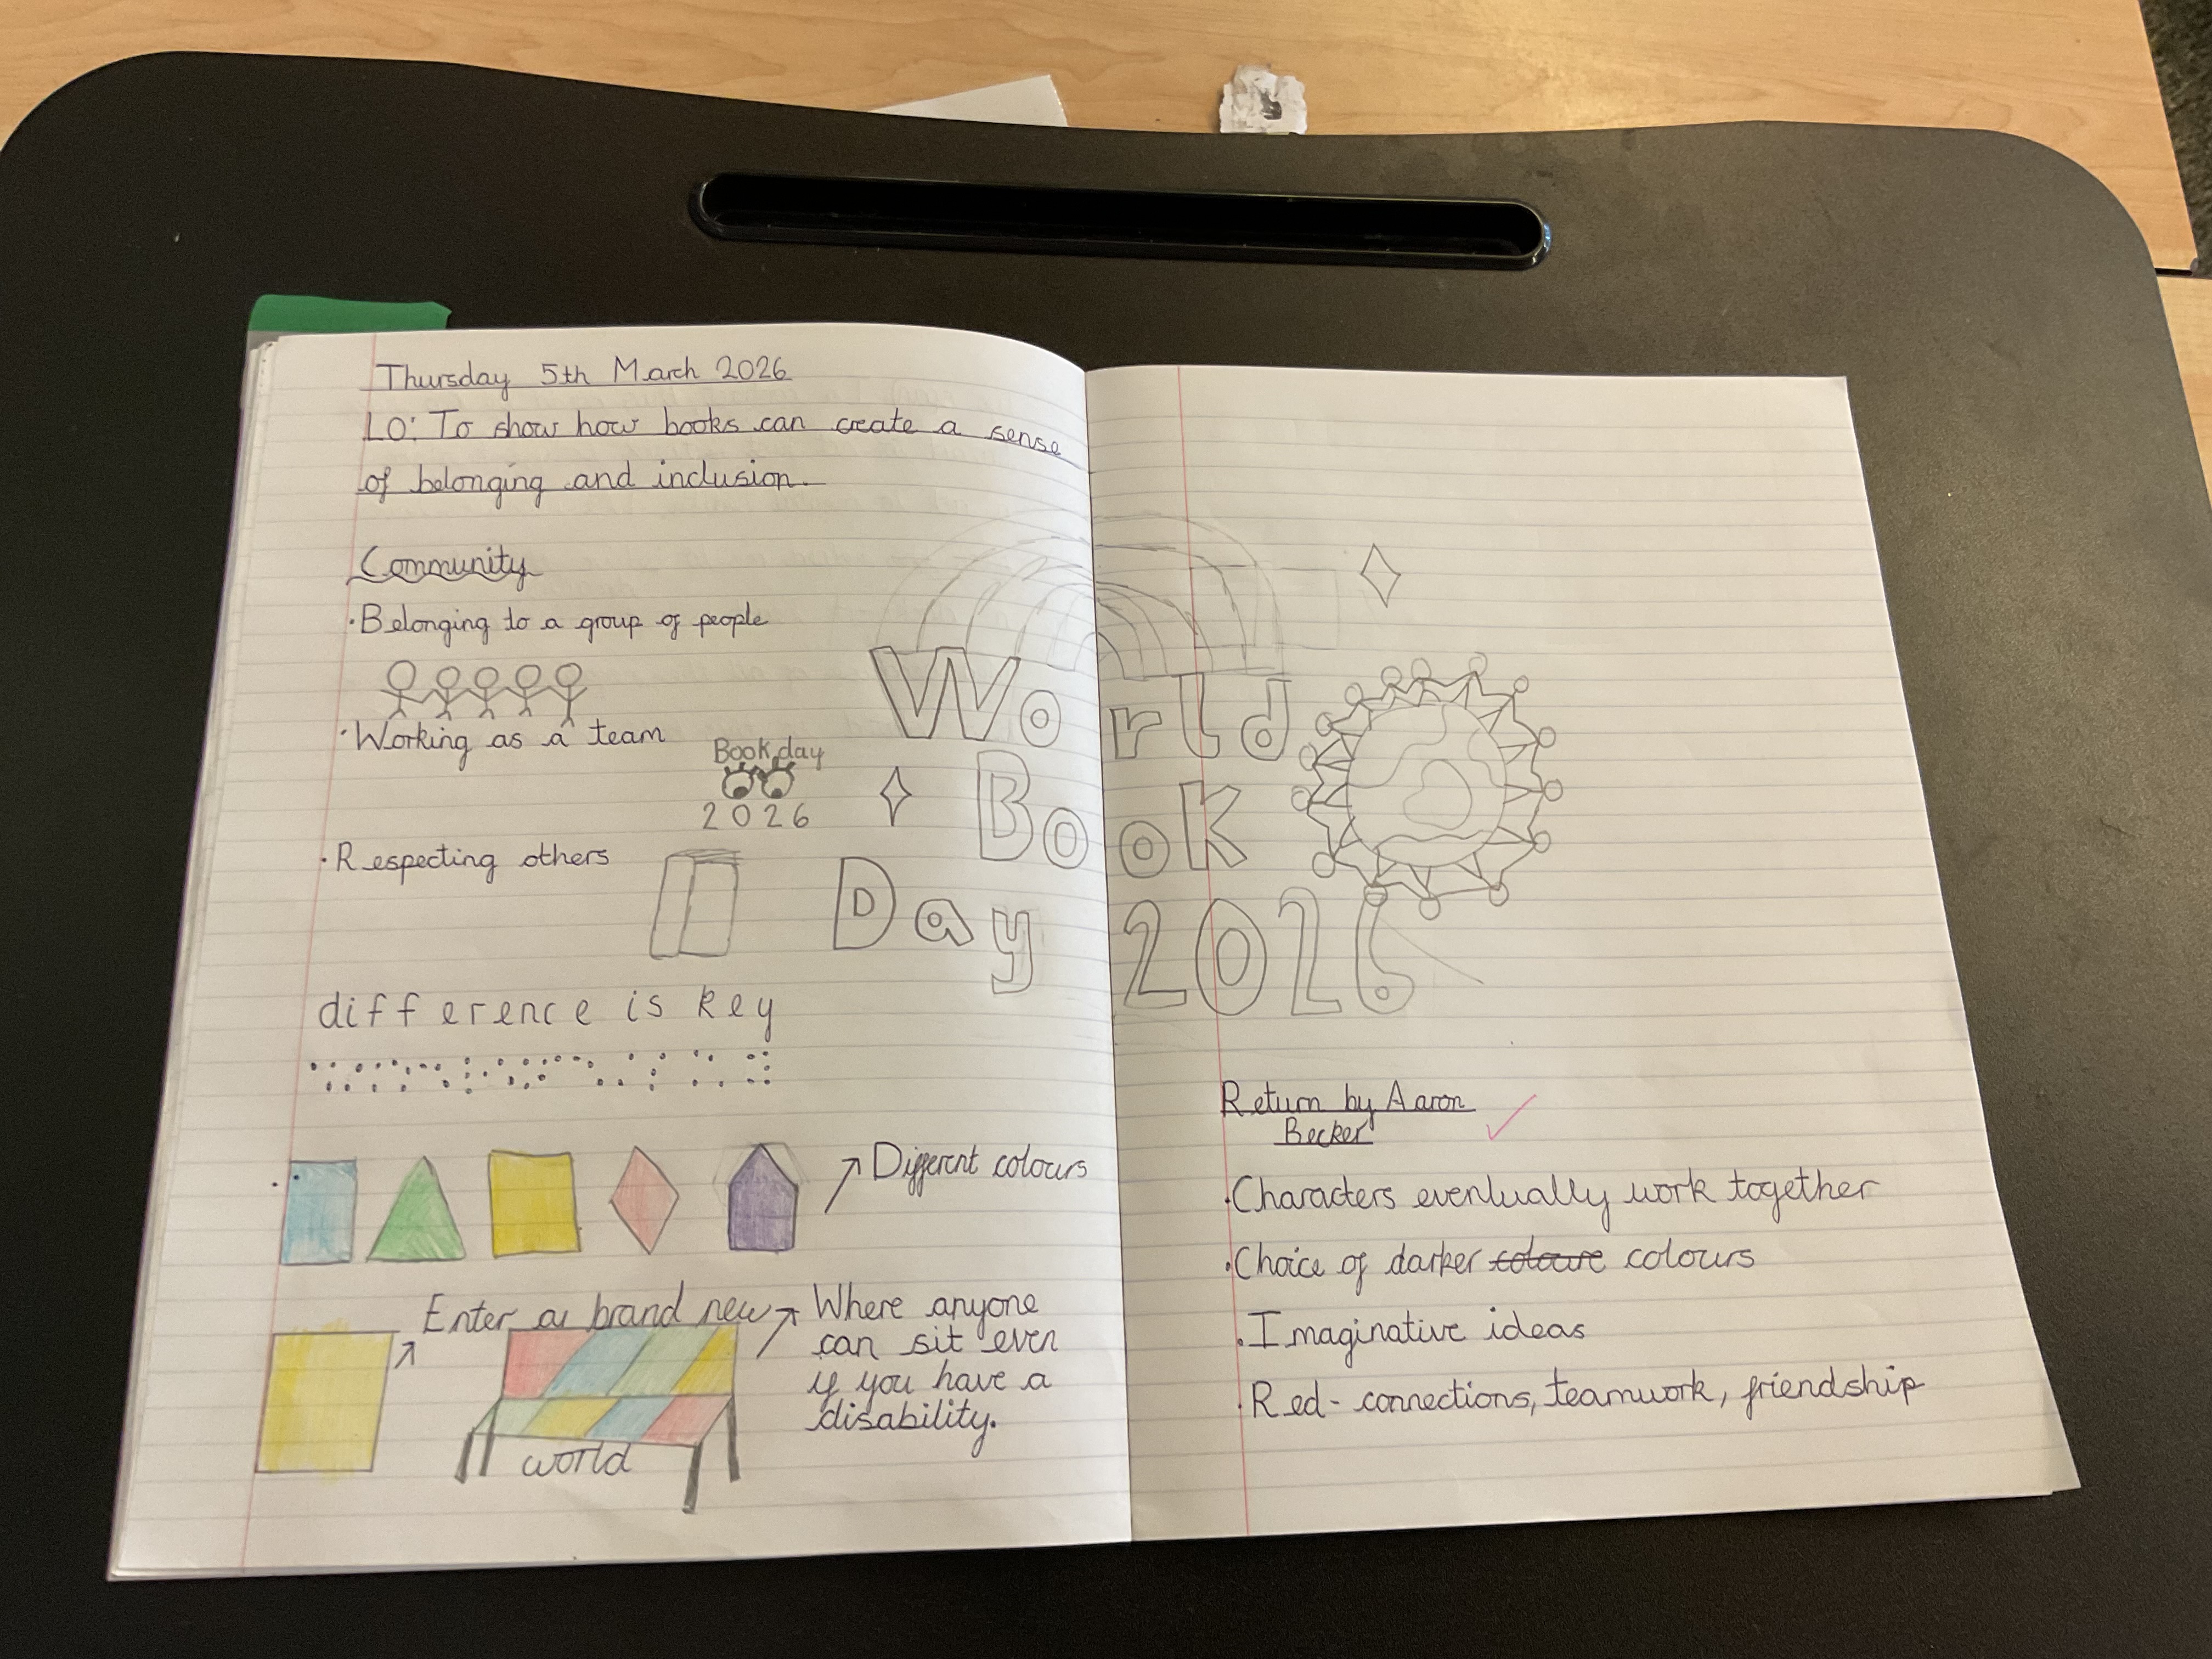 Thursday 5th March 2026
LO: To show how books can create a sense
of belonging and inclusion.
Community
·Belonging to a group of people
·Working as a team
Book day
2026
·Respecting others
World
Book
Day 2026
difference is key
Different colours
Enter a brand new
world
Where anyone
can sit even
if you have a
disability.
Return by Aaron
Becker
·Characters eventually work together
·Choice of darker coloure colours
·Imaginative ideas
·Red- connections, teamwork, friendship